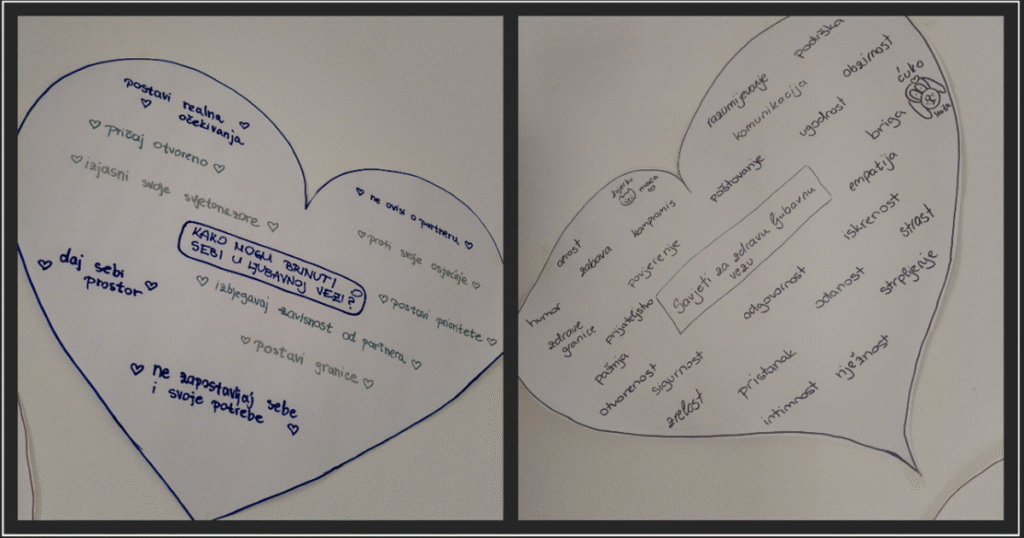 postavi realna
očekivanja
pričaj otvoreno
izjasni svoje svjetonazore
ne ovisi o partneru
prati svoje osjećaje
KAKO MOGU BRINUTI O
SEBI U LJUBAVNOJ VEZI?
daj sebi
prostor
izbjegavaj zavisnost od partnera
postavi prioritete
postavi granice
ne zapostavljaj sebe
i svoje potrebe
podrška
razumijevanje
obzirnost
komunikacija
ćuko
ugodnost
briga
poštovanje
empatija
maca
kompromis
zabava
povjerenje
Savjeti za zdravu ljubavnu
vezu
iskrenost
strast
humor
zdrave
granice
prijateljstvo
odgovornost
odanost
strpljenje
pažnja
otvorenost
sigurnost
zrelost
pristanak
intimnost
nježnost